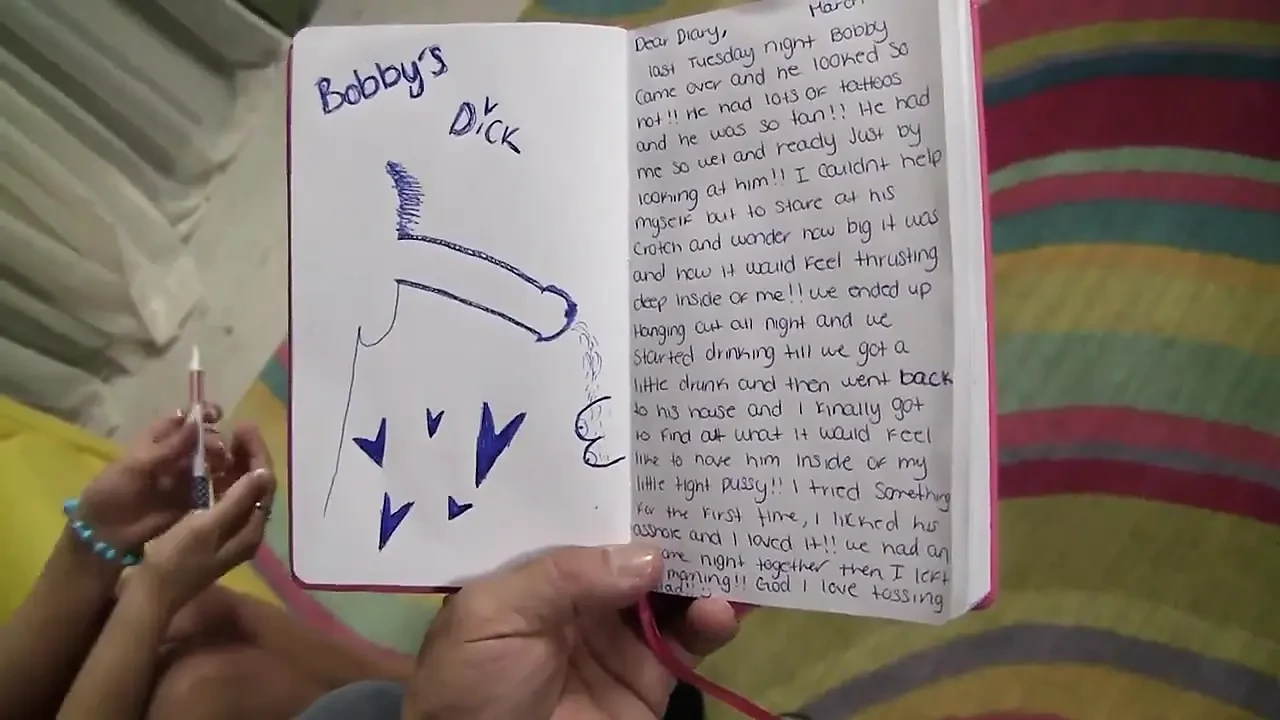 Bobby's
Dick
March
Dear Diary,
last Tuesday night Bobby
came over and he looked so
hot!! He had lots of tattoos
and he was so tan!! He had
me so wet and ready just by
looking at him!! I couldnt help
myself but to stare at his
crotch and wonder how big it was
and how it would feel thrusting
deep inside of me!! we ended up
Hanging out all night and we
started drinking till we got a
little drunk and then went back
to his house and I finally got
to find out what it would feel
like to have him inside of my
little tight pussy!! I tried something
for the first time, I licked his
asshole and I loved it!! we had an
night together then I left
morning!! God I love tossing